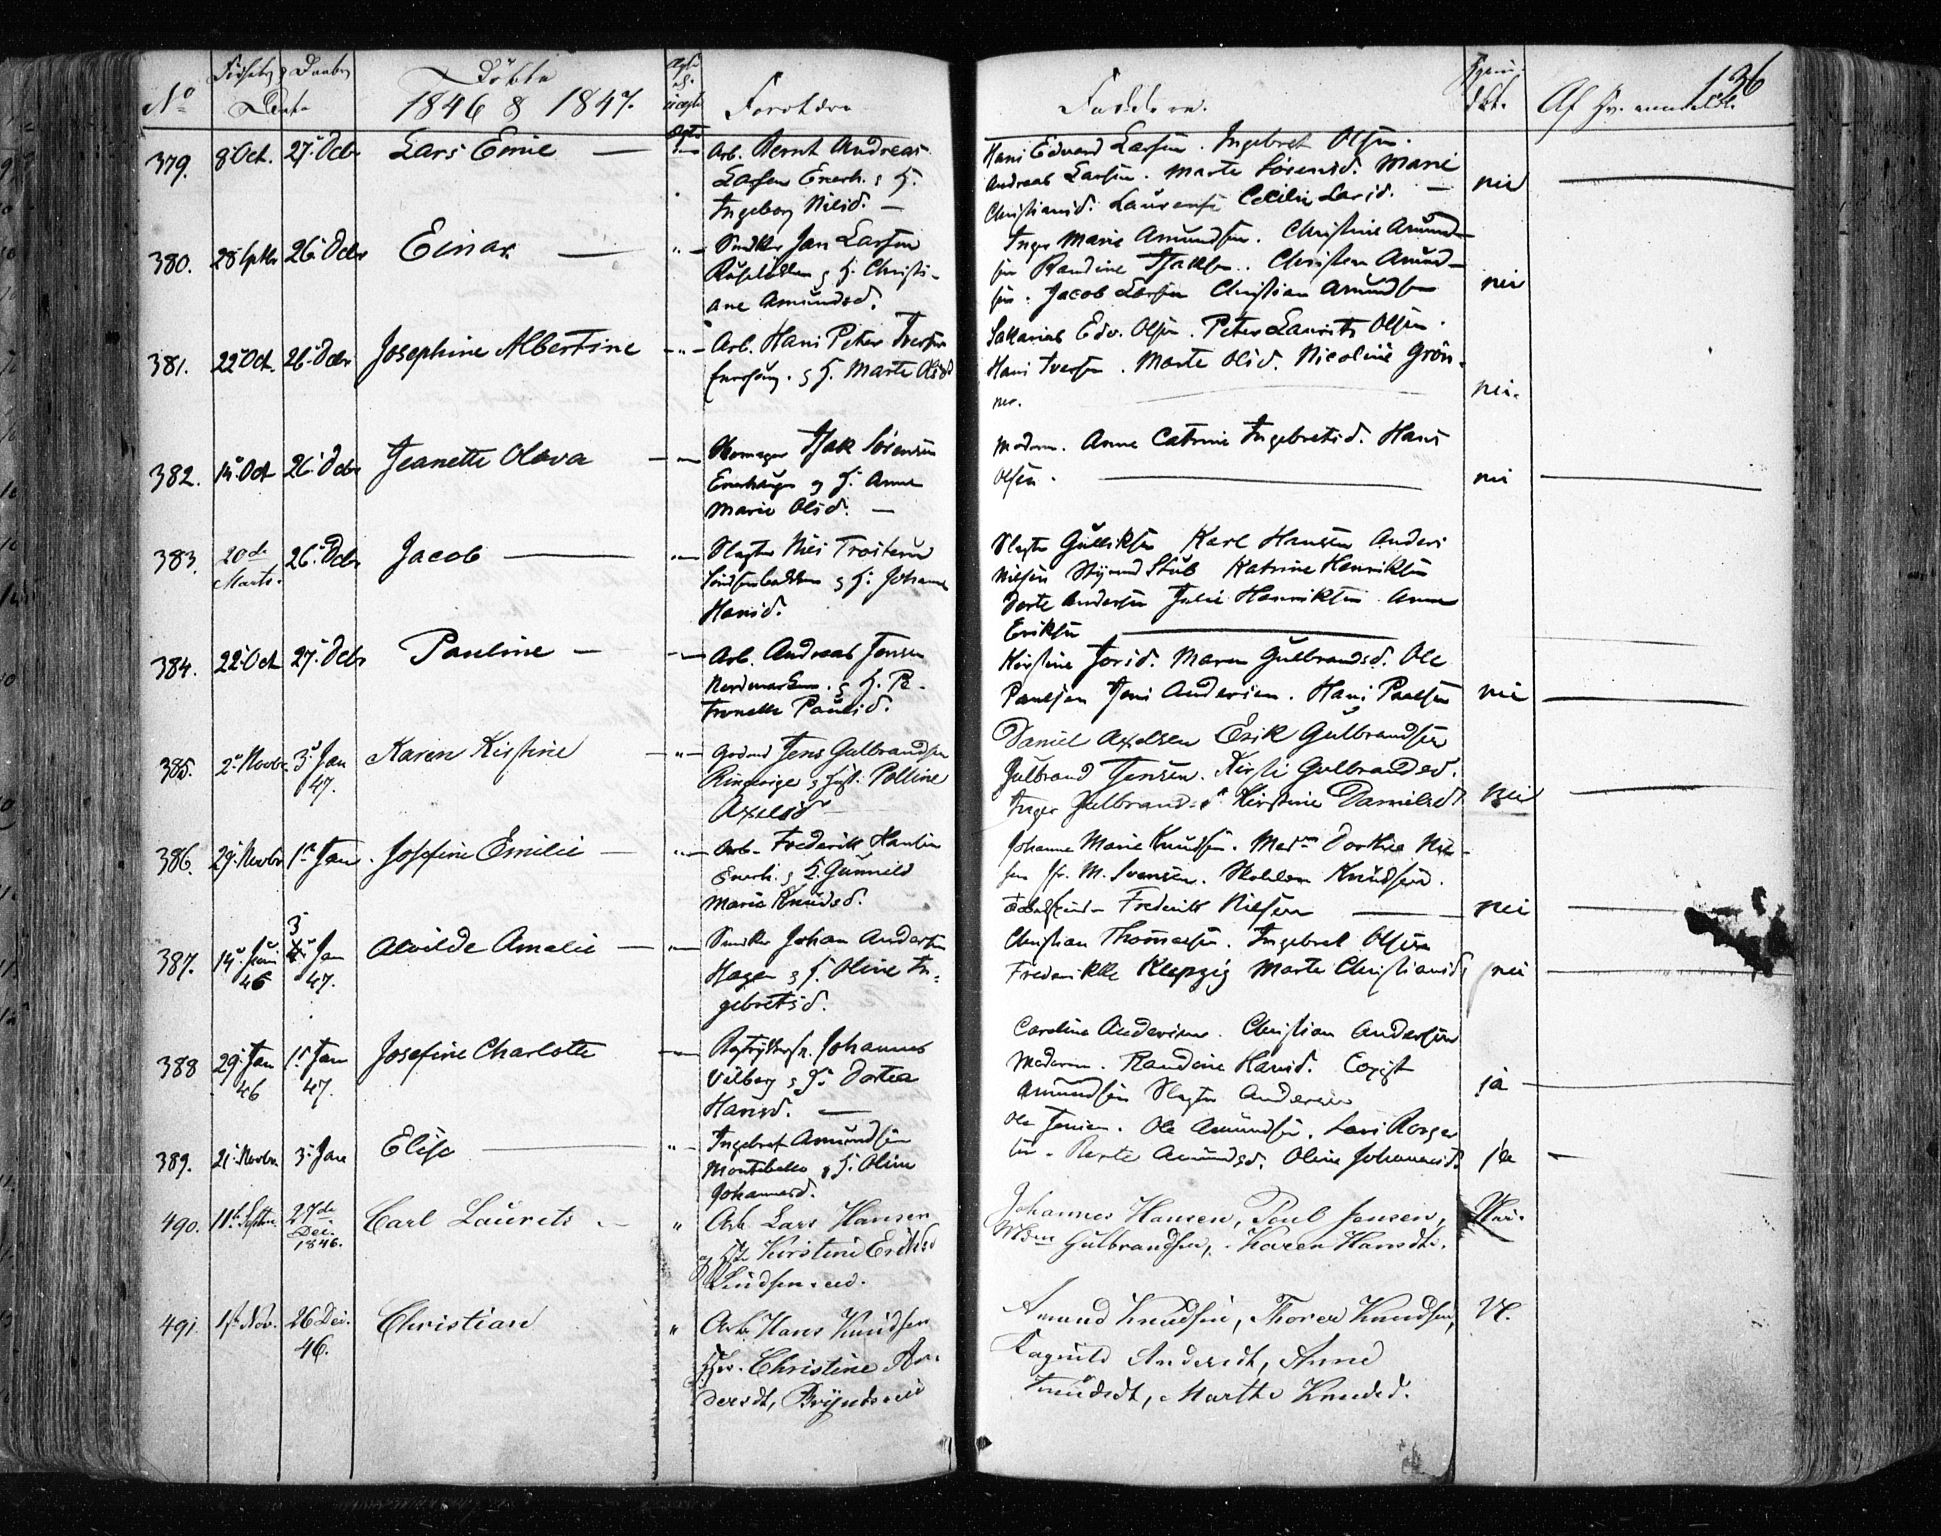 No
Döbte
1846 & 1847.
Forældre
Faddere.
136
379. 8 Oct. 27. Decbr Lars Emil —
Arb. Bernt Andreas
Larsen Enerh. & H.
Ingeborg Nilsd. —
Hans Edvard Larsen. Ingebret Olsen.
Andreas Larsen. Marte Sörensd. Marie
Christiansd. Laurense Cecilie Larsd. —
nei
380. 28 Sptbr 26. Decbr Einar —
Snedker Jan Larsen
& H. Christi-
ane Amundsd.
Inger Marie Amundsen. Christine Amund-
sen Randine Isaksen. Christian Amund-
sen. Jacob Larsen Christian Amundsen
nei
381. 22 Oct. 26. Decbr Josephine Albertine
Arb. Hans Peter Iversen
& H. Marte Olsd
Sakarias Edv. Olsen. Peter Laurits Olsen.
Hans Iversen. Marte Olsd. Nicoline Grön-
ner.
nei.
382. 14 Oct 26. Decbr Jeanette Olava
Skomager Isak Sörensen
Enerhaugen og H. Anne
Marie Olsd. —
Moderen. Anne Catrine Ingebretsd. Hans
Olsen.
nei
383. 20de
Marts. 26. Decbr Jacob
Slagter Nils
& H. Johanne
Hansd.
Slagter Gulliksen Karl Hansen Anders
Nilsen Stub Katrine Henriksen
Dorte Andersen Julie Henriksen Anne
Eriksen
384. 22. Oct 27. Decbr Pauline —
Arb. Andreas Jensen
Nordmarken. & H. Pe-
tronelle Paulsd.
Kirstine Jorsd. Maren Gulbrandsd. Ole
Paulsen Jens Andersen. Hans Paulsen
nei
385. 2. Novbr. 3. Jan
47. Karen Kirstine
Jens Gulbrandsen
Ringerige & Hust. Polline
Axelsd
Daniel Axelsen Erik Gulbrandsen
Gulbrand Jensen. Kirsti Gulbrandsd.
Inger Gulbrandsd. Kirstine Danielsdt
nei
386. 29. Novbr 1. Jan. Josefine Emilie —
Arb. Frederik Hansen
Enerh. & H. Gunnild
Marie Knudsd.
Johanne Marie Knudsen. Madm Dorthea Niel-
sen M. Svensen. Knudsen.
Frederik Nielsen
nei
387. 14. Juni
46 3. Jan
47. Alvilde Amalie —
Snedker Johan Andersen
Hagen & H. Oline In-
gebretsd.
Christian Thomassen. Ingebret Olsen
Frederikke Klepzig Marte Christiansd
nei
388 29. Jan
46 1. Jan
47. Josefine Charlotte
Johannes
Vilberg & H. Dortea
Hansd. —
Caroline Andersen. Christian Andersen
Moderen. Randine Hansd. Copist
Amundsen Slagter Andersen
ja
389. 21. Novbr. 3. Jan Elise
Ingebret Amundsen
Montebello & H. Oline
Johannesd.
Ole Jensen. Ole Amundsen. Lars Rorger
sen. Berte Amundsd. Oline Johannesd.
ja
490. 11te Septbr. 27de
Dec.
1846. Carl Laurets —
" Arb. Lars Hansen
og Hu Kirstine Eriksd
Johannes Hansen, Poul Jensen,
Mdm Gulbrandsen, Karen Hansdt.
Nei.
491. 1st Nov. 26 Dec.
46. Christian
" Arb. Hans Knudsen
Hu. Christine An-
dersdt,
Amund Knudsen, Thorer Knudsen,
Ragnild Andersdt, Anne
Knudsdt, Marthe Knudsd.
N.